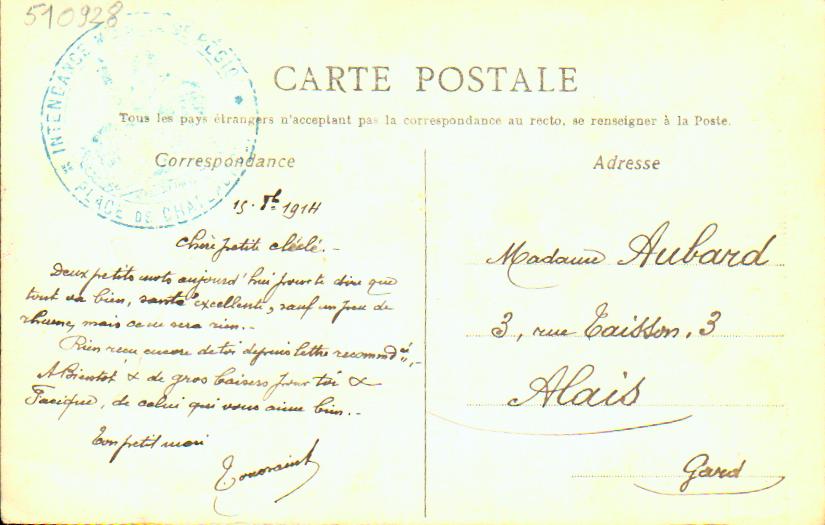 510928
INTENDANCE RÉGION
PLACE DE
CARTE POSTALE
Tous les pays étrangers n'acceptent pas la correspondance au recto, se renseigner à la Poste.
Correspondance
15. 1914
Chère petite cléclé. -
Deux petits mots aujourd'hui pour te dire que
tout va bien, santé excellente, sauf un peu de
rhume, mais ce ne sera rien. -
Rien reçu encore de toi depuis lettre recomm.dée, -
A Bientôt & de gros baisers pour toi &
de celui qui vous aime bien. -
Ton petit mari
Toussaint
Adresse
Madame Aubard
3, rue Taisson, 3
Alais
Gard